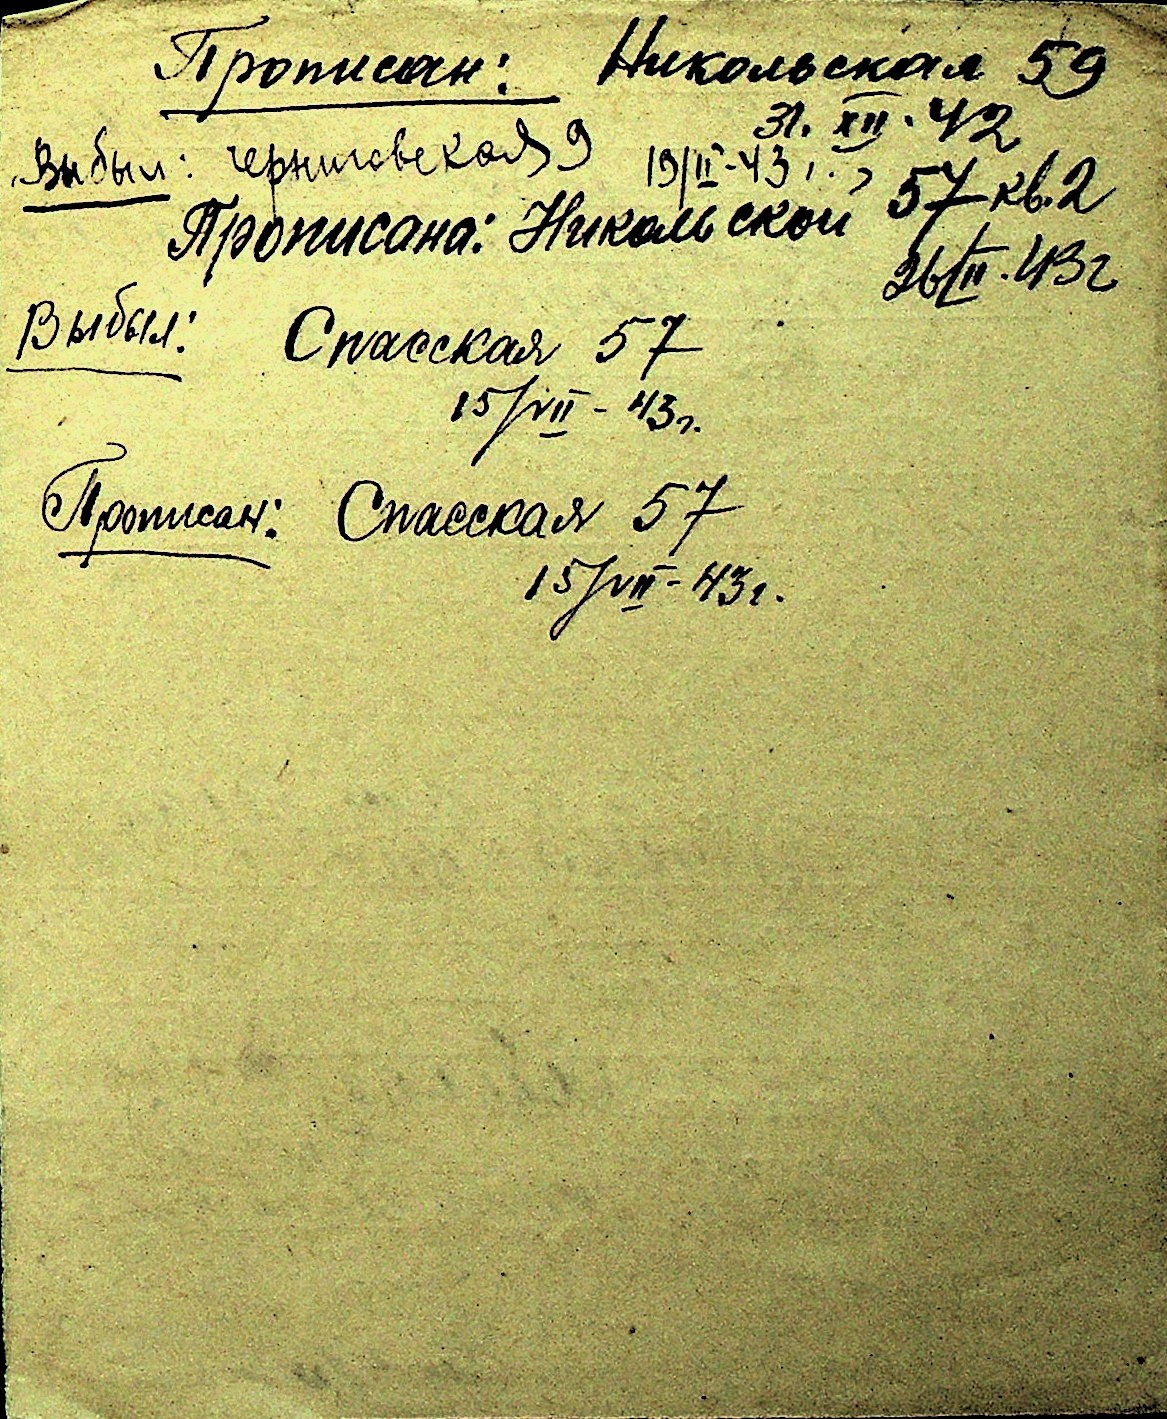 Прописан: Никольская 59
31. XII. 42
Выбыл: черниговская 9 19/II-43 г.
Прописана: Никольской 57 кв. 2
26/II. 43г
Выбыл: Спасская 57
15/VII - 43г.
Прописан: Спасская 57
15/VII - 43г.